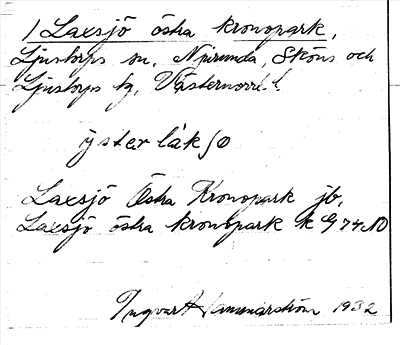 1 Laxsjö östra kronopark,
Ljustorps sn, Njurunda, Sköns och
Ljustorps tg, Västernorrl. l.
yster lák sø
Laxsjö Östra Kronopark jb.
Laxsjö östra kronopark k G 74 NO
Ingvar Hammarström 1932